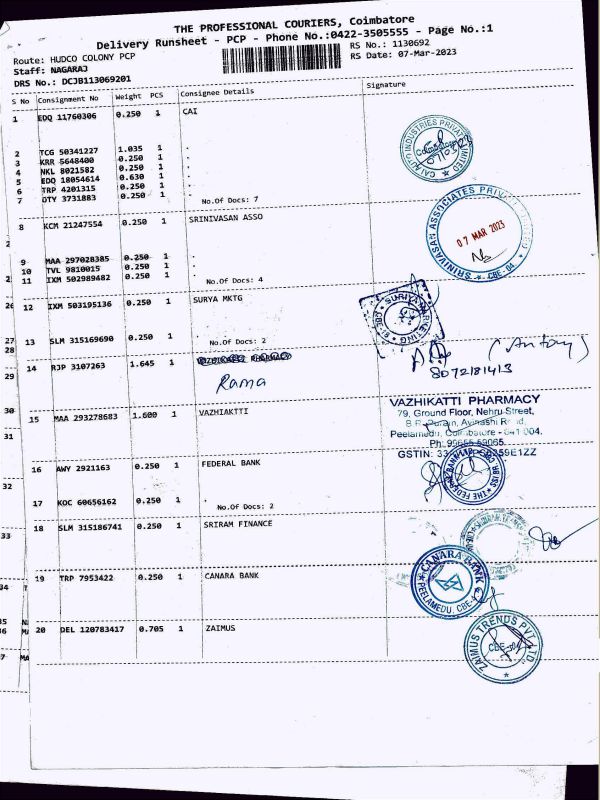 THE PROFESSIONAL COURIERS, Coimbatore
Delivery Runsheet - PCP - Phone No.:0422-3505555 - Page No.:1
Route: HUDCO COLONY PCP
RS No.: 1130692
Staff: NAGARAJ
RS Date: 07-Mar-2023
DRS No.: DCJB113069201
S No Consignment No Weight PCS Consignee Details Signature
1 EDQ 11760306 0.250 1 CAI
2 TCG 50341227 1.035 1 .
3 KRR 5648400 0.250 1 .
4 NKL 8021582 0.250 1 .
5 EDQ 18054614 0.630 1 .
6 TRP 4201315 0.250 1 .
7 OTY 3731883 0.250 1 .
No.Of Docs: 7
8 KCM 21247554 0.250 1 SRINIVASAN ASSO
SRINIVASAN ASSOCIATES PRIVATE LIMITED
07 MAR 2023
CBE-04
9 MAA 297028385 0.250 1 .
10 TVL 9810015 0.250 1 .
11 IXM 502989482 0.250 1 .
No.Of Docs: 4
12 IXM 503195136 0.250 1 SURYA MKTG
13 SLM 315169690 0.250 1 .
No.Of Docs: 2
14 RJP 3107263 1.645 1
(Antony)
8072181413
Rama
15 MAA 293278683 1.600 1 VAZHIAKTTI
VAZHIKATTI PHARMACY
79, Ground Floor, Nehru Street,
Avinashi Road,
Peelamedu, Coimbatore - 641 004.
Ph: 99655 59065
GSTIN: 33
16 AWY 2921163 0.250 1 FEDERAL BANK
17 KOC 60656162 0.250 1 .
No.Of Docs: 2
18 SLM 315186741 0.250 1 SRIRAM FINANCE
19 TRP 7953422 0.250 1 CANARA BANK
CANARA BANK
PEELAMEDU, CBE-4
20 DEL 120783417 0.705 1 ZAIMUS
ZAIMUS TRENDS PVT. LTD.,